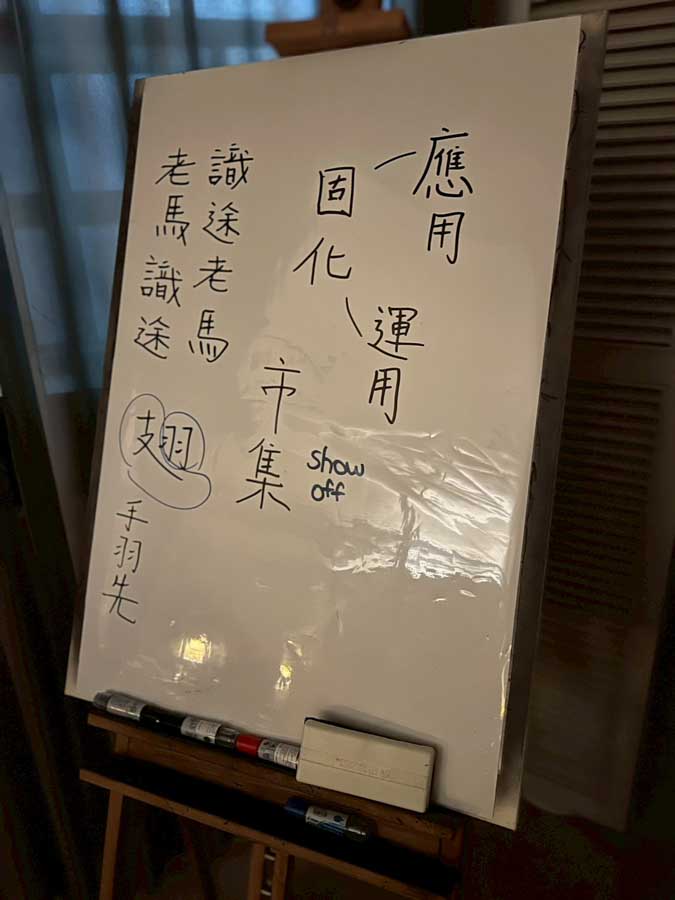 應用
固化
運用
市集
show
off
識途老馬
老馬識途
翅
手羽先